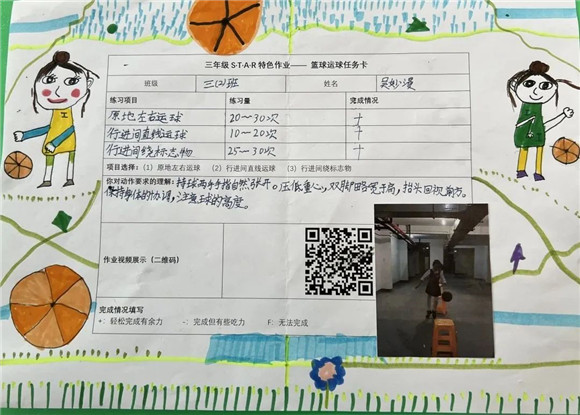 三年级 S·T·A·R 特色作业—— 篮球运球任务卡
班级 三(2)班 姓名 吴妙漫
练习项目 练习量 完成情况
原地左右运球 20～30次 +
行进间直线运球 10～20次 +
行进间绕标志物 25～30次 +
项目选择：(1) 原地左右运球 (2) 行进间直线运球 (3) 行进间绕标志物
你对动作要求的理解：持球两手手指自然张开。压低重心，双脚略宽于肩，抬头目视前方。
保持身体的协调，注意球的高度。
作业视频展示（二维码）
完成情况填写
+：轻松完成有余力 -：完成但有些吃力 F：无法完成